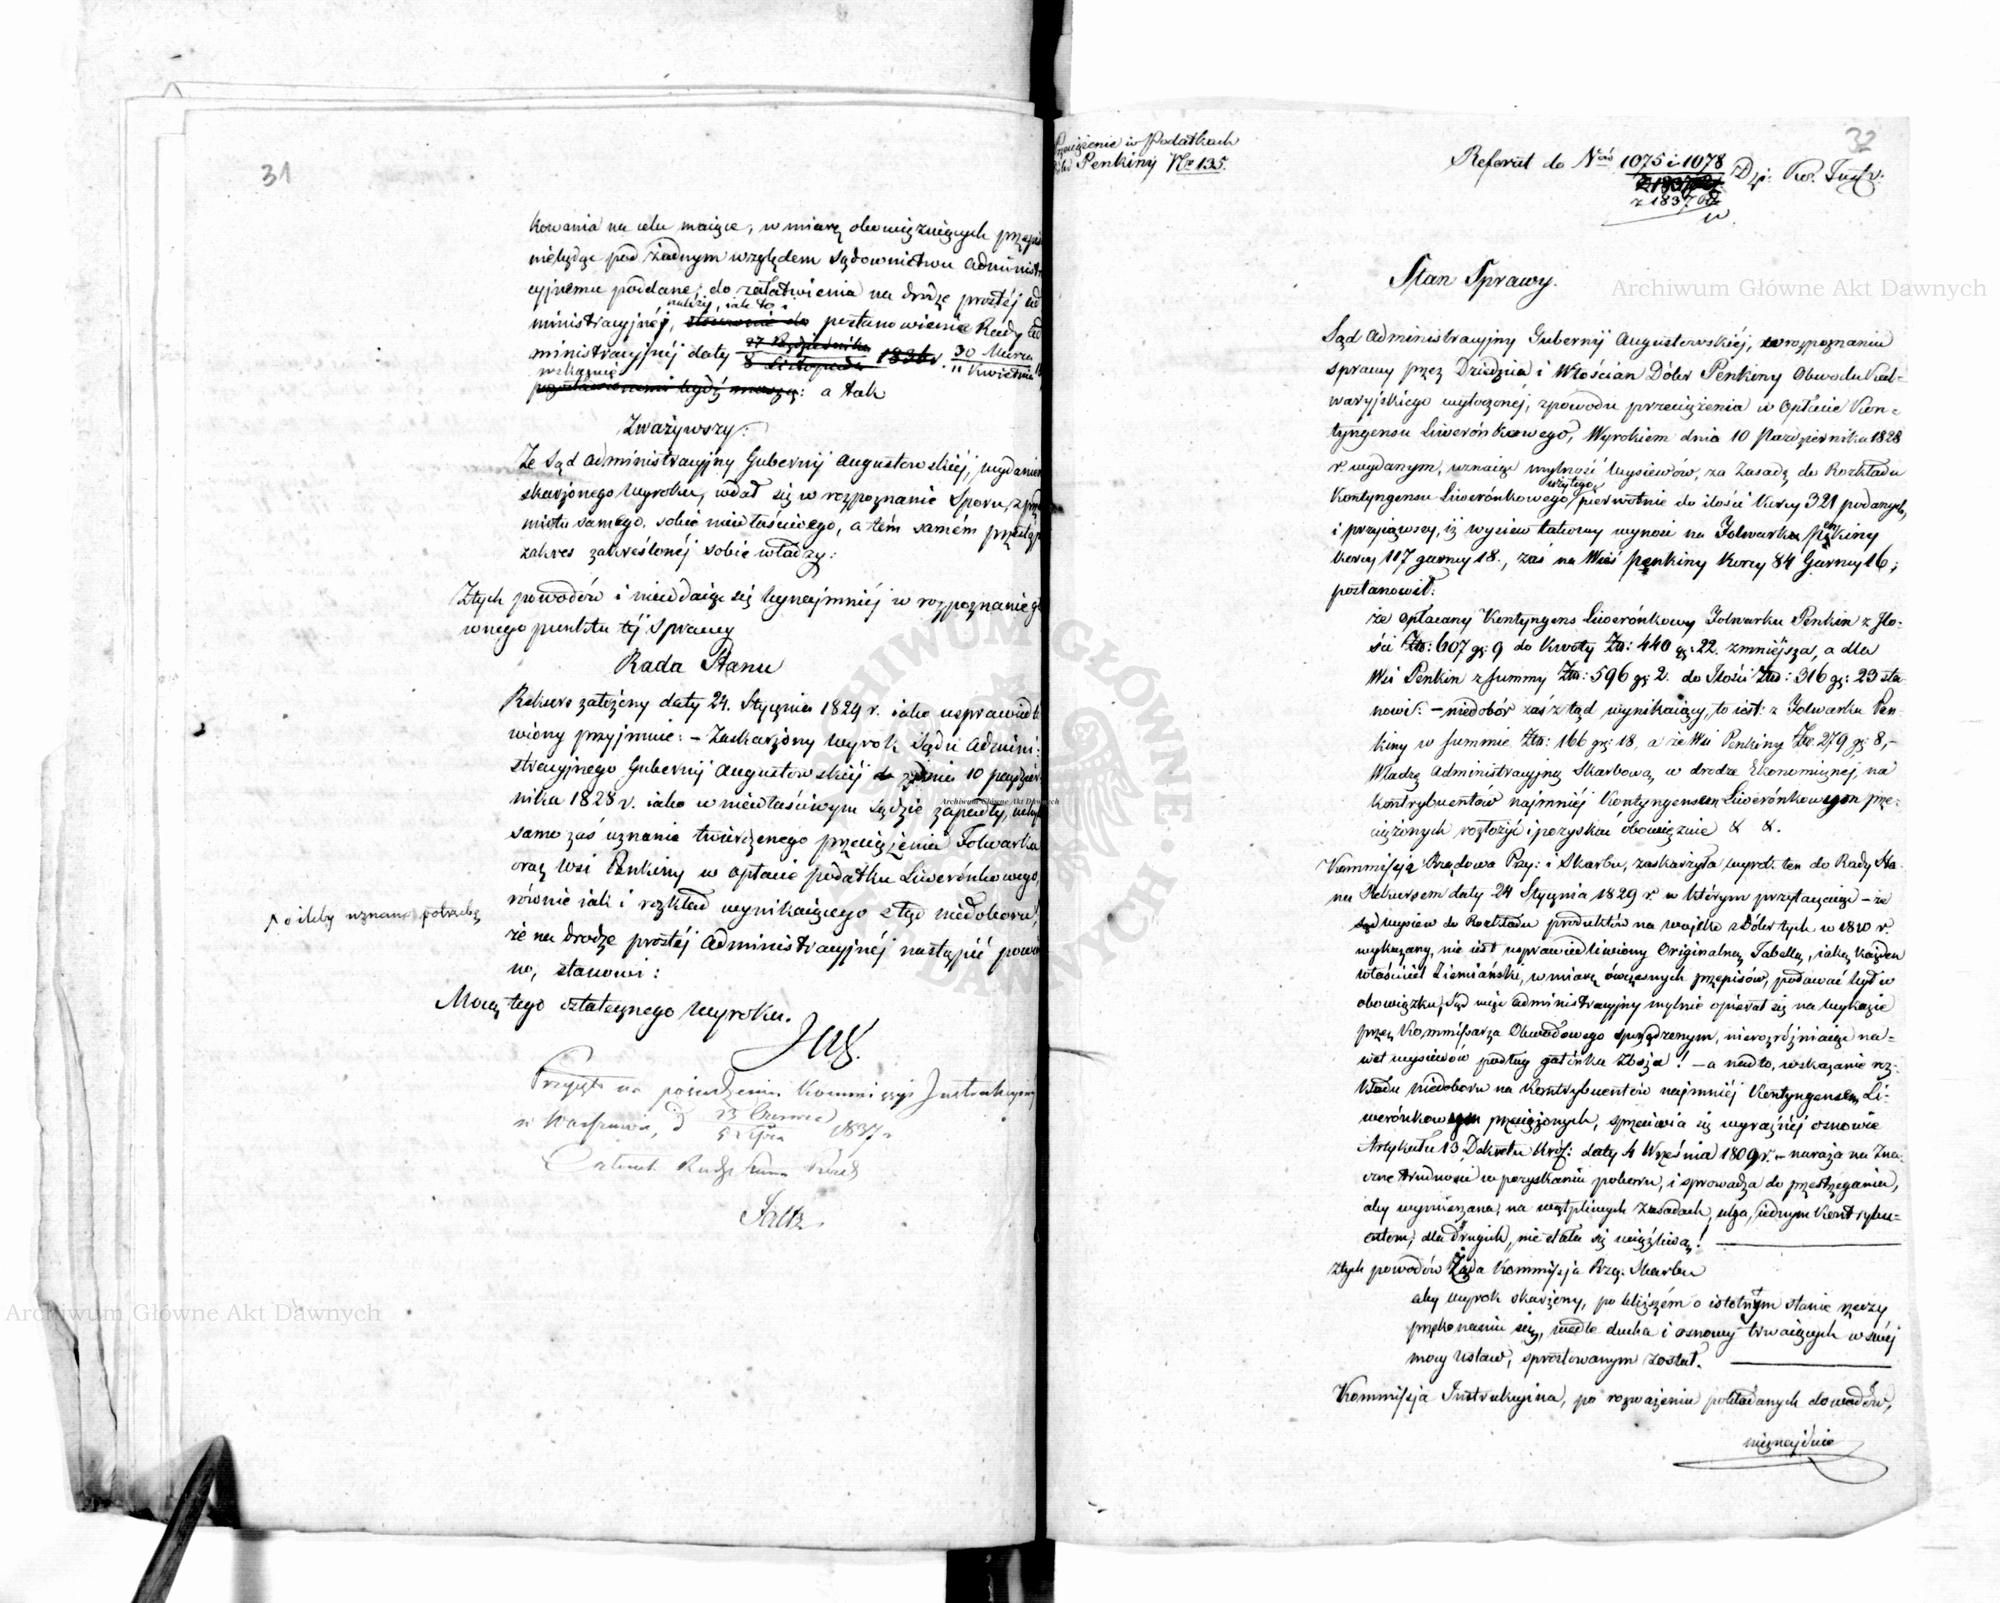 31
kowania na celu maiące, w miarę obowięzuiących przepi
niebędąc pod żadnym względem Sądownictwu administra
cyjnemu poddane, do załatwienia na drodze prostéj ad
należy, iak to
ministracyjnéj, stosownie do postanowienie Rady Ad
ministracyjnéj daty 27 Października 8 Listopada 1836 r. 30 Marca 11 Kwietnia
wskazuie
: a tak
Zważywszy:
Że Sąd administracyjny Gubernij Augustowskiéj, wydaniem
skarżonego Wyroku, wdał się w rozpoznanie Sporu, z przed
miotu samego, sobie niewłaściwego, a tém samém przestąpi
zakres zakreślonéj sobie władzy:
Z tych powodów i niewdaiąc się bynajmniéj w rozpoznanie gł
wnego punktu téj Sprawy
Rada Stanu
Rekurs założony daty 24. Stycznia 1829 r. iako usprawiedli
wiony przyjmuie: – Zaskarżony Wyrok Sądu admini-
stracyjnego Gubernij Augustowskiéj z dnia 10 paździer
nika 1828 r. iako w niewłaściwym Sądzie zapadły, uchyl
samo zaś uznanie twierdzonego przeciążenia Folwarku
oraz Wsi Penkiny w opłacie podatku Liwerónkowego,
^ o ileby uznano potrzebę
równie iak i rozkład wynikaiącego ztąd niedoboru,
że na drodze prostéj Administracyjnéj nastąpić powin
no, stanowi:
Mocą tego ostatecznego Wyroku.
Przyjęto na posiedzeniu Kommissyi Instrukcyjnéj
w Warszawie, d. 23 Czerwca 5 Lipca 1837 r.
Przeciążenie w Podatkach
Dóbr Penkiny Nr 135.
32
Referat do Nrów 1075 i 1078 Dzi. Kr. Instr.
z 1837
Stan Sprawy.
Sąd Administracyjny Gubernij Augustowskiéj, w rozpoznaniu
Sprawy przez Dziedzica i Włościan Dóbr Penkiny Obwodu Kal-
waryjskiego wytoczonéj, z powodu przeciążenia w Opłacie Kon-
tyngensu Liwerónkowego, Wyrokiem dnia 10 Października 1828
r. wydanym, uznaiąc mylność Wysiewów, za Zasadę do Rozkładu
Kontyngensu Liwerónkowego wziętego, pierwotnie do ilości Korcy 321 podanych,
i przyjąwszy, iż wysiew takowy wynosi na Folwarku Penkiny
Korcy 117 garncy 18., zaś na Wieś Penkiny Korcy 84 Garncy 16;
postanowił:
że opłacany Kontyngens Liwerónkowy Folwarku Penkin z Ilo-
ści Złp: 607 gr: 9 do Kwoty Złp: 440 gr: 22. zmniejsza, a dla
Wsi Penkin z Summy Złp: 596 gr: 2. do Ilości Złp: 316 gr: 23 sta-
nowi: – niedobór zaś ztąd wynikaiący, to iest: z Folwarku Pen-
kiny w summie Złp: 166 gr: 18, a ze Wsi Penkiny Złp: 279 gr: 8,–
Władzę Administracyjną Skarbową w drodze Ekonomicznéj, na
Kontrybuentów najmniéj Kontyngensem Liwerónkowym prze-
ciążonych rozłożyć i pozyskać obowięzuie & &.
Kommissja Rządowa Przy: i Skarbu, zaskarżyła Wyrok ten do Rady Sta-
nu Rekursem daty 24 Stycznia 1829 r. w którym przytaczaiąc – że
wysiew do Rozkładu produktów na wojsko z Dóbr tych w 1810 r.
wykazany, nie iest usprawiedliwiony Originalną Tabellą, iaką każden
właściciel Ziemiański, w miarę ówczesnych przepisów, podawać był w
obowiązku, Sąd więc administracyjny mylnie opierał się na Wykazie
przez Kommissarza Obwodowego sporządzonym, nierozróżniaiąc na-
wet wysiewów podług gatónku Zboża! – a nadto, wskazanie roz-
kładu niedoboru na Kontrybuentów najmniéj Kontyngensem Li-
werónkowym przeciążonych, sprzeciwia się wyraźnéj osnowie
Artykułu 13 Dekretu Król: daty 4 Września 1809 r. – naraża na Zna-
czne trudności w pozyskaniu poboru, i sprowadza do przestrzegania,
aby wymierzana, na wątpliwych zasadach, ulga, iednym Kontrybu-
entom, dla drugich, nie stała się uciążliwą!
Z tych powodów Żąda Kommissja Rzą: Skarbu
aby wyrok skarżony, po bliższém o istotnym stanie rzeczy
przekonaniu się, wedle ducha i osnowy trwaiących w swéj
mocy Ustaw, sprostowanym został.
Kommissja Instrukcyjna, po rozważeniu pokładanych dowodów,
Archiwum Główne Akt Dawnych
Archiwum Główne Akt Dawnych
Archiwum Główne Akt Dawnych
ARCHIWUM GŁÓWNE AKT DAWNYCH